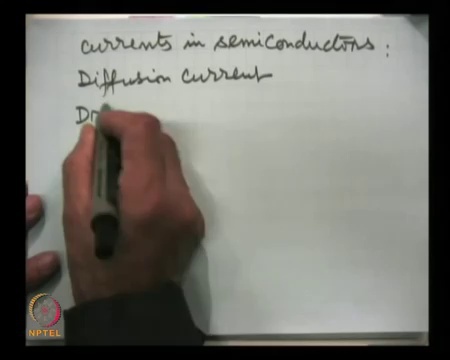 currents in semiconductors :
Diffusion current
Dr
NPTEL